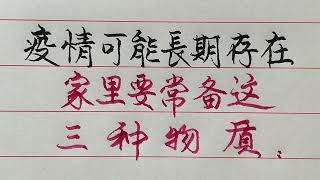 疫情可能長期存在
家里要常备这
三种物质